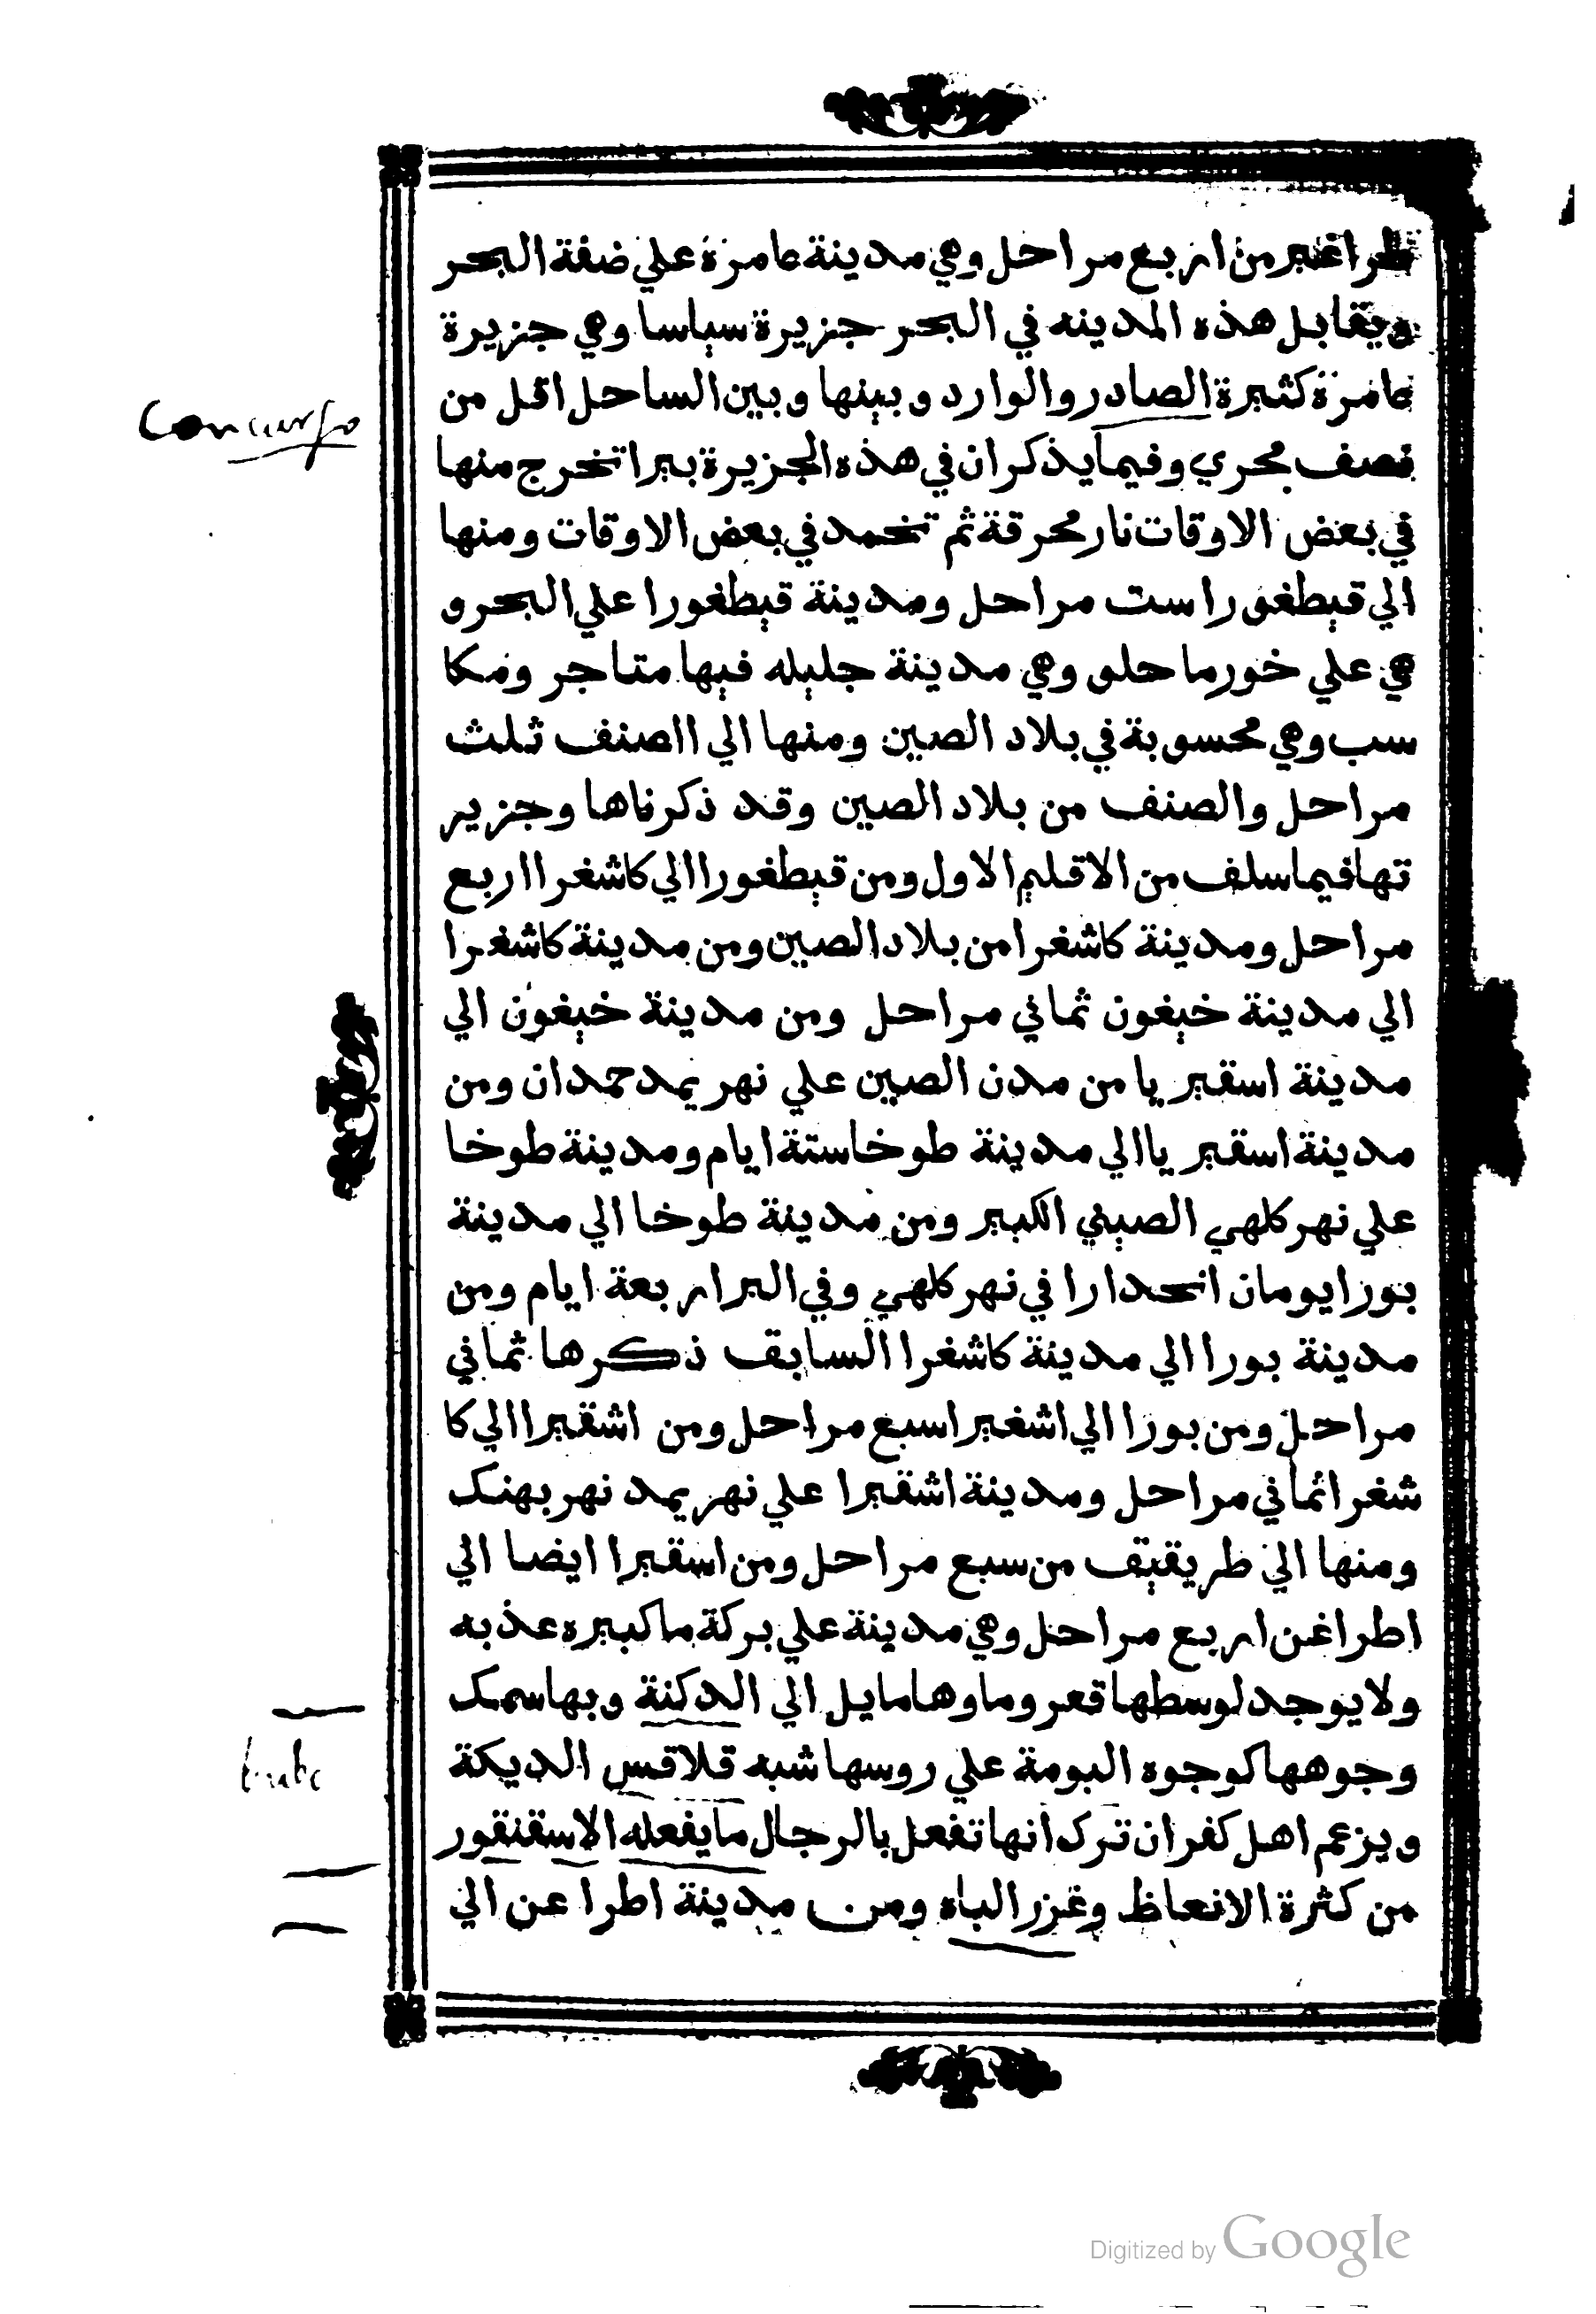 طراغنبر من اربع مراحل وهي مدينة عامرة علي ضفة البحر
ويقابل هذه المدينه في البحر جزيرة سياسا وهي جزيرة
عامرة كثيرة الصادر والوارد وبينها وبين الساحل اقل من
نصف مجري وفيما يذكر ان في هذه الجزيرة بيرا تخرج منها
في بعض الاوقات نار محرقة ثم تخمد في بعض الاوقات ومنها
الي قيطغورا ست مراحل ومدينة قيطغورا علي البحر و
هي علي خور ما حلو وهي مدينة جليله فيها متاجر ومكا
سب وهي محسوبة في بلاد الصين ومنها الي االصنف ثلث
مراحل والصنف من بلاد الصين وقد ذكرناها وجزير
تها فيما سلف من الاقليم الاول ومن قيطغورا الي كاشغرا اربع
مراحل ومدينة كاشغرا من بلاد الصين ومن مدينة كاشغرا
الي مدينة خيغون ثماني مراحل ومن مدينة خيغون الي
مدينة اسقيريا من مدن الصين علي نهر يمد حمدان ومن
مدينة اسقيريا الي مدينة طوخا ستة ايام ومدينة طوخا
علي نهر كلهي الصيني الكبير ومن مدينة طوخا الي مدينة
بورا يومان انحدارا في نهر كلهي وفي البر اربعة ايام ومن
مدينة بورا الي مدينة كاشغرا السابق ذكرها ثماني
مراحل ومن بورا الي اشغيرا سبع مراحل ومن اشقيرا الي كا
شغرا ثماني مراحل ومدينة اشقيرا علي نهر يمد نهر بهنك
ومنها الي طريقيق من سبع مراحل ومن اسقيرا ايضا الي
اطراغن اربع مراحل وهي مدينة علي بركة ما كبيره عذبه
ولا يوجد لوسطها قعر وماوها مايل الي الدكنة وبها سمك
وجوهها كوجوه البومة علي روسها شبه قلاقس الديكة
ويزعم اهل كفران ترك انها تفعل بالرجال ما يفعله الاسقنقور
من كثرة الانعاظ وغزر الباه ومن مدينة اطراعن الي
Concurso
Digitized by Google